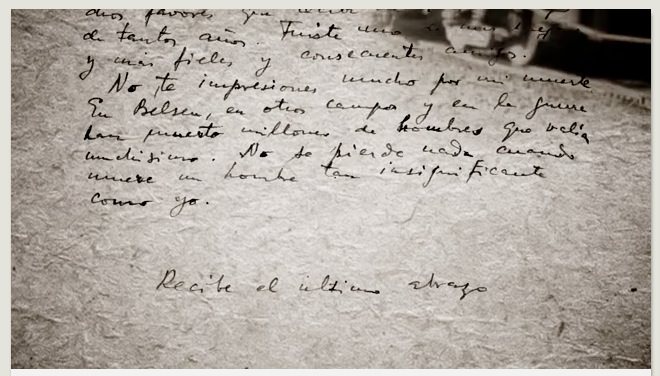 de tantos años. Fuiste uno
y más fieles y consecuentes amigos.
No te impresiones mucho por mi muerte
En Belsen, en otros campos y en la guerra
han muerto millones de hombres que valían
muchísimo. No se pierde nada cuando
muere un hombre tan insignificante
como yo.
Recibe el último abrazo